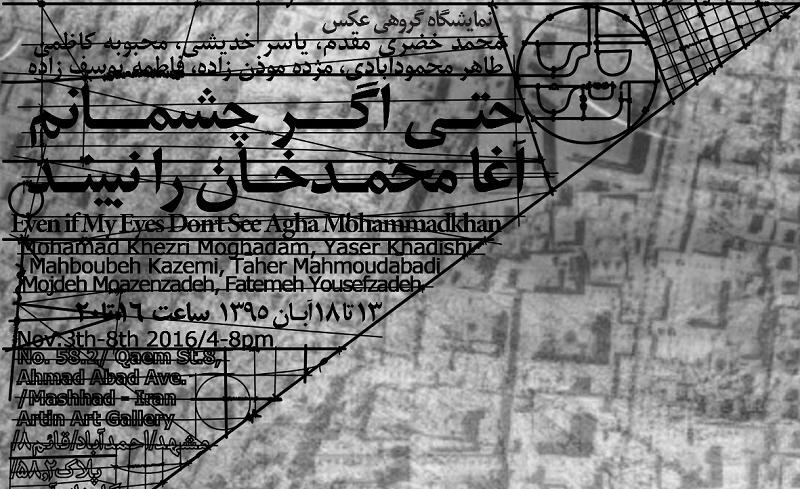 نمایشگاه گروهی عکس
محمد خضری مقدم، یاسر خدیشی، محبوبه کاظمی
طاهر محمودآبادی، مژده موذن زاده، فاطمه یوسف زاده
حتی اگر چشمانم
آغا محمدخان را نبیند
Even if My Eyes Dont See Agha Mohammadkhan
Mohamad Khezri Moghadam, Yaser Khadishi
Mahboubeh Kazemi, Taher Mahmoudabadi
Mojdeh Moazenzadeh, Fatemeh Yousefzadeh
۱۳ تا ۱۸ آبان ۱۳۹۵ ساعت ۱۶ تا ۲۰
Nov.3th-8th 2016/4-8pm
No. 58.2/ Qaem St.8,
Ahmad Abad Ave.
/Mashhad - Iran
Artin Art Gallery
مشهد/احمدآباد/قائم۸/
پلاک۵۸٫۲/